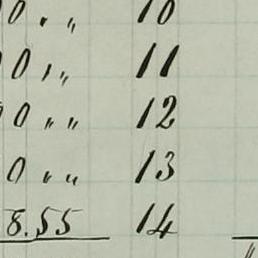 0 . „ 10
0 , „ 11
0 „ „ 12
0 „ „ 13
8.55 14